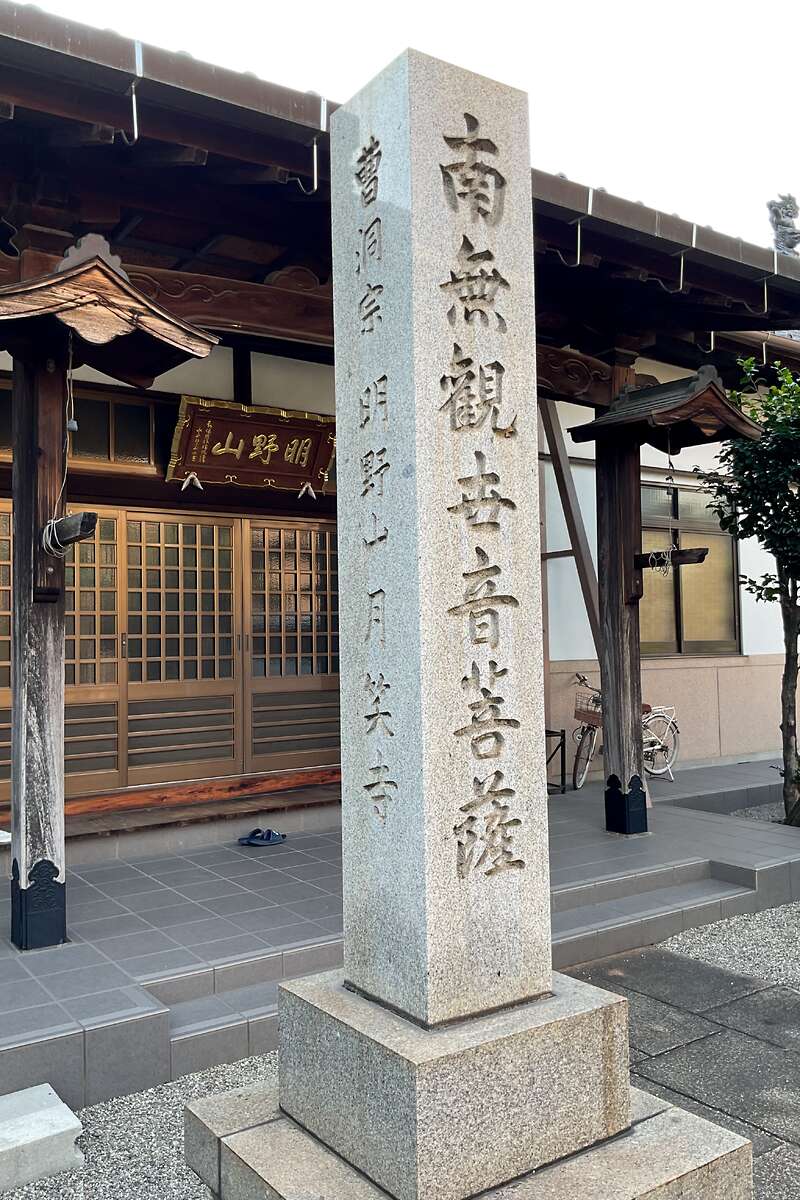 南無観世音菩薩
曹洞宗 明野山 月笑寺
山野明